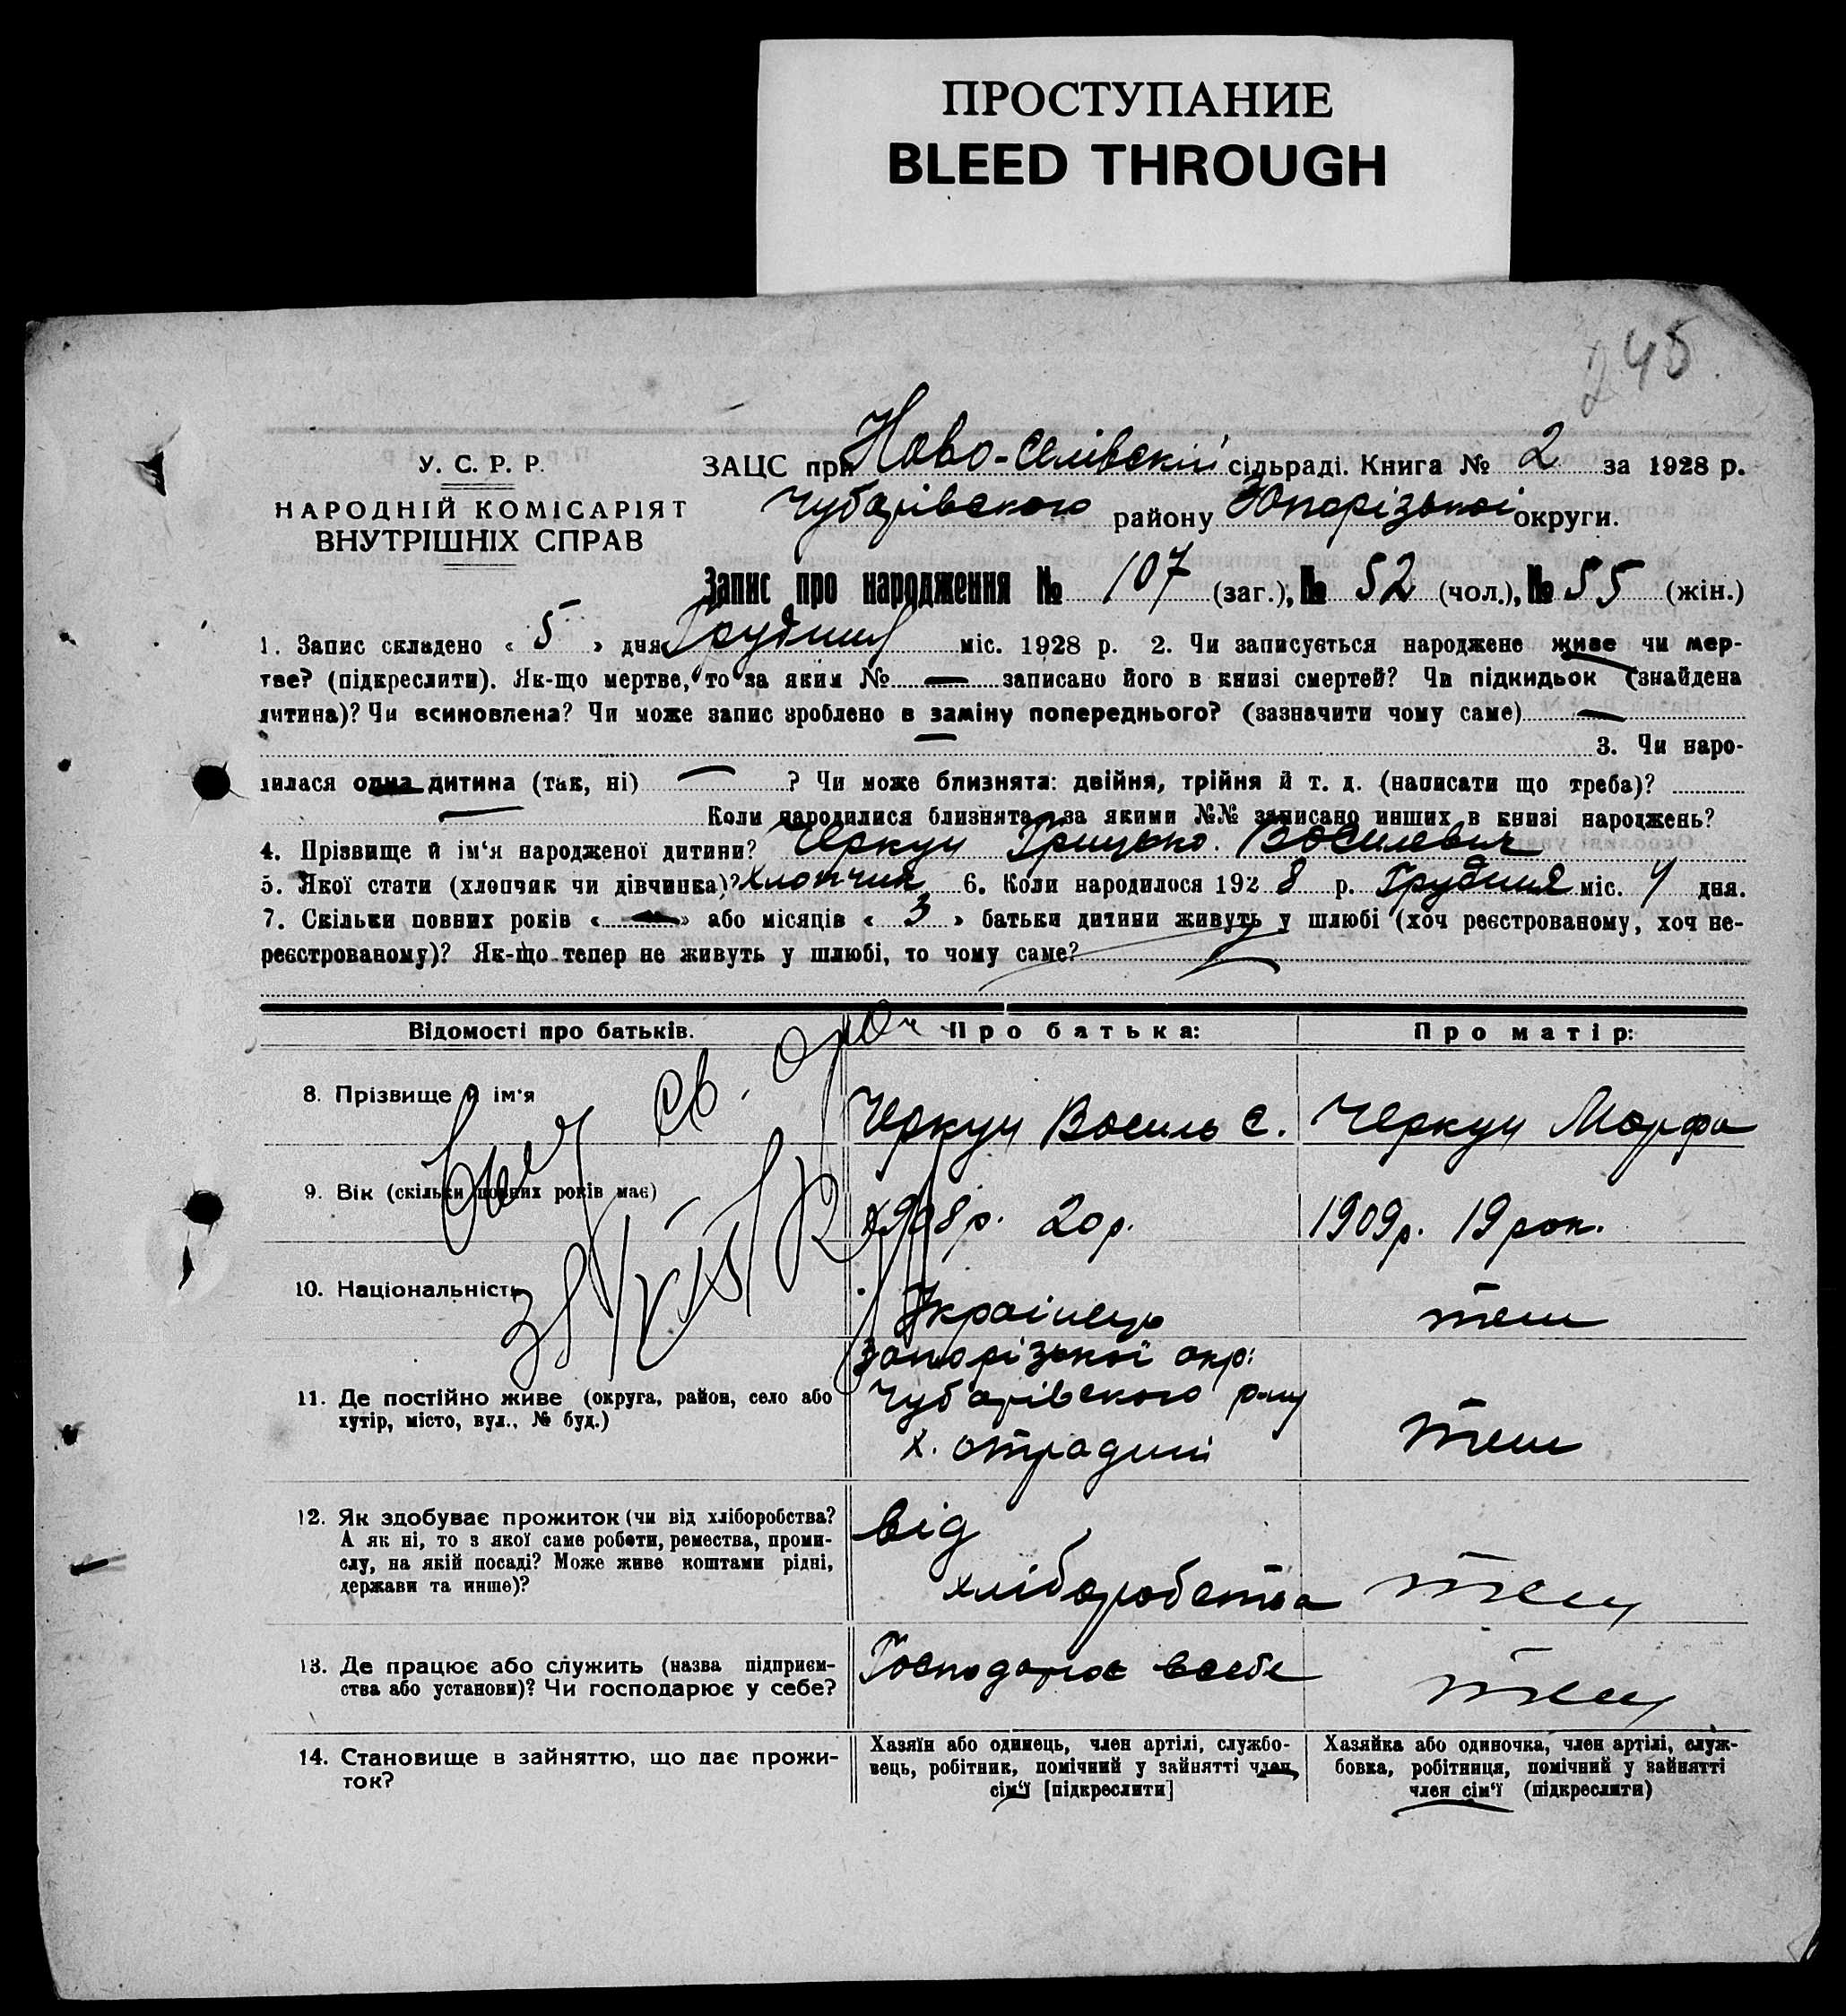 ПРОСТУПАНИЕ
BLEED THROUGH
245
У. С. Р. Р.
НАРОДНІЙ КОМІСАРІЯТ
ВНУТРІШНІХ СПРАВ
ЗАЦС при Ново-Селівській сільраді. Книга № 2 за 1928 р.
Чубарівского району Запорізької округи.
Запис про народження № 107 (заг.), № 52 (чол.), № 55 (жін.)
1. Запис складено « 5 » дня Грудня міс. 1928 р. 2. Чи записується народжене живе чи мер-
тве? (підкреслити). Як-що мертве, то за яким № — записано його в книзі смертей? Чи підкидьок (знайдена
дитина)? Чи всиновлена? Чи може запис зроблено в заміну попереднього? (зазначити чому саме) —
3. Чи наро-
дилася одна дитина (так, ні) — ? Чи може близнята: двійня, трійня й т. д. (написати що треба)?
— Коли народилися близнята, за якими №№ записано инших в книзі народжень?
4. Прізвище й ім‘я народженої дитини? Черкун Грицько Василевич
5. Якої стати (хлопчик чи дівчинка)? Хлопчик 6. Коли народилося 1928 р. Грудня міс. 4 дня.
7. Скільки повних років « — » або місяців « 3 » батьки дитини живуть у шлюбі (хоч реєстрованому, хоч не-
реєстрованому)? Як-що тепер не живуть у шлюбі, то чому саме? —
Відомості про батьків.
Про батька:
Про матір:
8. Прізвище й ім‘я
Черкун Василь С.
Черкун Марфа
9. Вік (скільки повних років має)
1908 р. 20 р.
1909 р. 19 рок.
10. Національність
Українець
теж
11. Де постійно живе (округа, район, село або
хутір, місто, вул., № буд.)
Запорізької окр:
Чубарівского р-ну
х. отрадний
теж
12. Як здобуває прожиток (чи від хліборобства?
А як ні, то з якої саме роботи, ремества, проми-
слу, на якій посаді? Може живе коштами рідні,
держави та инше)?
від
хліборобства
теж
13. Де працює або служить (назва підприєм-
ства або установи)? Чи господарює у себе?
Господарює всебе
теж
14. Становище в зайняттю, що дає прожи-
ток?
Хазяїн або одинець, член артілі, службо-
вець, робітник, помічний у зайнятті член
сім‘ї [підкреслити]
Хазяйка або одиночка, член артілі, служ-
бовка, робітниця, помічний у зайнятті
член сім‘ї (підкреслити)